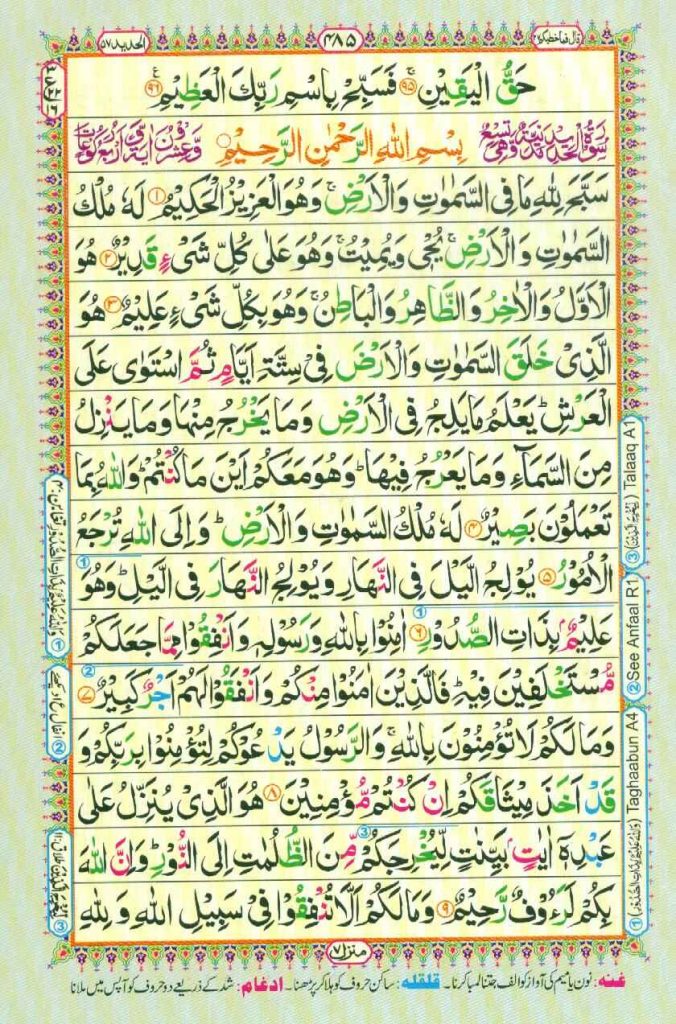 قال فما خطبکم ۲۷
۴۸۵
الحدید ۵۷
حَقُّ الْيَقِيْنِ ۚ ۹۵ فَسَبِّحْ بِاسْمِ رَبِّكَ الْعَظِيْمِ ۹۶
سُوْرَةُ الْحَدِيْدِ مَدَنِيَّةٌ وَّهِيَ تِسْعٌ
بِسْمِ اللهِ الرَّحْمٰنِ الرَّحِيْمِ
وَّعِشْرُوْنَ اٰيَةً وَّاَرْبَعُ رُكُوْعَاتٍ
سَبَّحَ لِلّٰهِ مَا فِى السَّمٰوٰتِ وَالْاَرْضِ ۚ وَهُوَ الْعَزِيْزُ الْحَكِيْمُ ۱ لَهٗ مُلْكُ
السَّمٰوٰتِ وَالْاَرْضِ ۚ يُحْيٖ وَيُمِيْتُ ۚ وَهُوَ عَلٰى كُلِّ شَىْءٍ قَدِيْرٌ ۲ هُوَ
الْاَوَّلُ وَالْاٰخِرُ وَالظَّاهِرُ وَالْبَاطِنُ ۚ وَهُوَ بِكُلِّ شَىْءٍ عَلِيْمٌ ۳ هُوَ
الَّذِىْ خَلَقَ السَّمٰوٰتِ وَالْاَرْضَ فِىْ سِتَّةِ اَيَّامٍ ثُمَّ اسْتَوٰى عَلَى
الْعَرْشِ ؕ يَعْلَمُ مَا يَلِجُ فِى الْاَرْضِ وَمَا يَخْرُجُ مِنْهَا وَمَا يَنْزِلُ
مِنَ السَّمَآءِ وَمَا يَعْرُجُ فِيْهَا ؕ وَهُوَ مَعَكُمْ اَيْنَ مَا كُنْتُمْ ؕ وَاللهُ بِمَا
تَعْمَلُوْنَ بَصِيْرٌ ۴ لَهٗ مُلْكُ السَّمٰوٰتِ وَالْاَرْضِ ؕ وَاِلَى اللهِ تُرْجَعُ
الْاُمُوْرُ ۵ يُوْلِجُ الَّيْلَ فِى النَّهَارِ وَيُوْلِجُ النَّهَارَ فِى الَّيْلِ ؕ وَهُوَ
عَلِيْمٌۢ بِذَاتِ الصُّدُوْرِ ۶ اٰمِنُوْا بِاللهِ وَرَسُوْلِهٖ وَاَنْفِقُوْا مِمَّا جَعَلَكُمْ
مُّسْتَخْلَفِيْنَ فِيْهِ ؕ فَالَّذِيْنَ اٰمَنُوْا مِنْكُمْ وَاَنْفَقُوْا لَهُمْ اَجْرٌ كَبِيْرٌ ۷
وَمَا لَكُمْ لَا تُؤْمِنُوْنَ بِاللهِ ۚ وَالرَّسُوْلُ يَدْعُوْكُمْ لِتُؤْمِنُوْا بِرَبِّكُمْ وَ
قَدْ اَخَذَ مِيْثَاقَكُمْ اِنْ كُنْتُمْ مُّؤْمِنِيْنَ ۸ هُوَ الَّذِىْ يُنَزِّلُ عَلٰى
عَبْدِهٖۤ اٰيٰتٍۭ بَيِّنٰتٍ لِّيُخْرِجَكُمْ مِّنَ الظُّلُمٰتِ اِلَى النُّوْرِ ؕ وَاِنَّ اللهَ
بِكُمْ لَرَءُوْفٌ رَّحِيْمٌ ۹ وَمَا لَكُمْ اَلَّا تُنْفِقُوْا فِىْ سَبِيْلِ اللهِ وَلِلّٰهِ
① (وَاللهُ عَلِيْمٌۢ بِذَاتِ الصُّدُوْرِ) Taghaabun A4
② See Anfaal R1
③ Talaaq A1
منزل ۷
غنہ: نون یا میم کی آواز کو الف جتنا لمبا کرنا۔ قلقلہ: ساکن حروف کو ہلا کر پڑھنا۔ ادغام: شد کے ذریعے دو حروف کو آپس میں ملانا